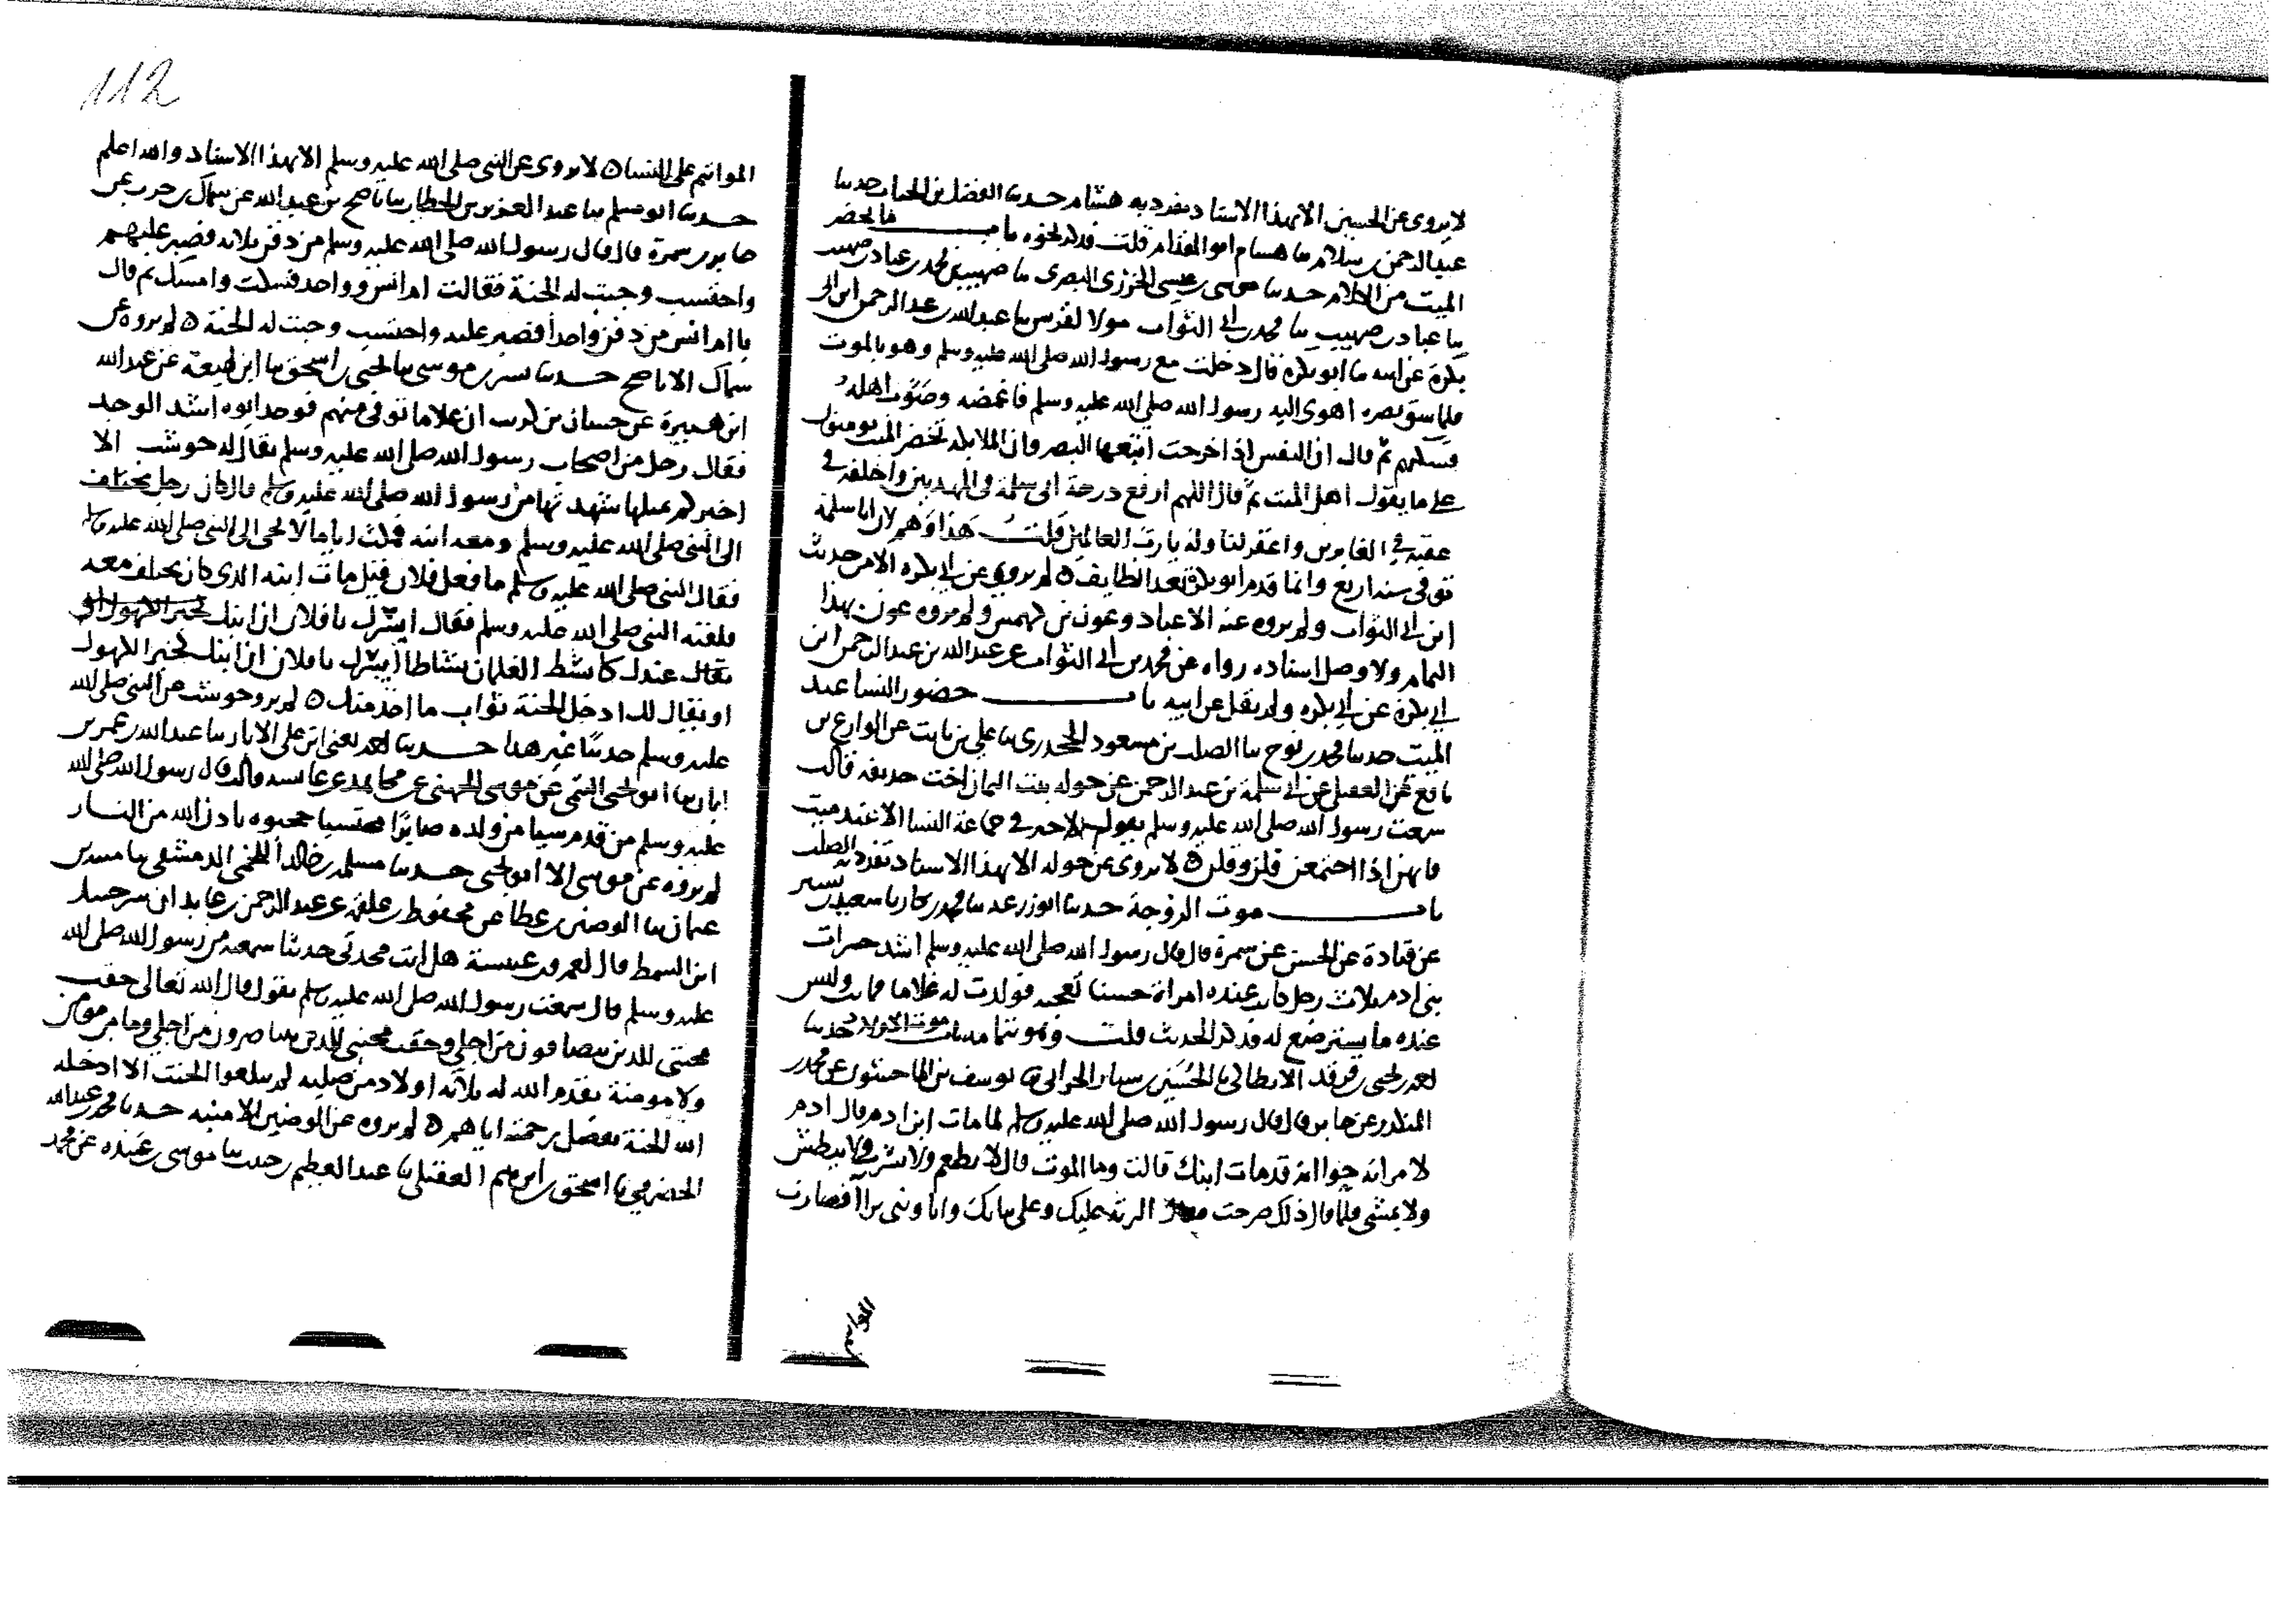 لا يروى عن الحسين الا بهذا الاسناد تفرد به هشام حدثنا الفضل بن الحباب حدثنا
عبد الرحمن بن سلام ثنا هشام ابو المقدام قلت فذكر نحوه باب ما يحضر
الميت من الكلام حدثنا موسى بن عيسى الجزري البصري ثنا صهيب بن محمد بن عباد بن صهيب
ثنا عباد بن صهيب ثنا محمد بن ابي النواب عبد الله بن عبد الرحمن ابن ابي
بكرة عن ابيه ثنا ابو بكرة قال دخلت مع رسول الله صلى الله عليه وسلم وهو بالموت
فلما شق بصره اهوى اليه رسول الله صلى الله عليه وسلم فاغمضه وصوت اهله
فسكتهم ثم قال ان النفس اذا خرجت اتبعها البصر وان الملائكة تحضر الميت يومنون
على ما يقول اهل الميت ثم قال اللهم ارفع درجة ابي سلمة في المهديين واخلفه في
عقبه في الغابرين واغفر لنا وله يا رب العالمين قلت هذا وهم لان ابا سلمة
توفي سنة اربع وانما قدم ابو بكرة بعد الطايف لم يروى عن ابي بكرة الا من حديث
ابن ابي النواب ولم يروه عنه الا عباد وعون بن كهمس ولم يروه عون بهذا
التمام ولا وصل اسناده رواه عن محمد بن ابي النواب عن عبد الله بن عبد الرحمن ابن
ابي بكرة عن ابي بكرة ولم يقل عن ابيه باب حضور النسا عند
الميت حدثنا محمد بن نوح ثنا الصلت بن مسعود الجحدري ثنا علي بن ثابت عن الوازع بن
نافع عن ابي سلمة بن عبد الرحمن عن خولة بنت اليمان اخت حذيفة قالت
سمعت رسول الله صلى الله عليه وسلم يقول لا خير في جماعة النسا الا عند ميت
فانهن اذا اجتمعن قلن وقلن لا يروى عن خولة الا بهذا الاسناد تفرد به الصلت
باب موت الزوجة حدثنا ابو زرعة ثنا محمد بن بكار ثنا سعيد بن بشير
عن قتادة عن الحسن عن سمرة قال قال رسول الله صلى الله عليه وسلم اشد حسرات
بني ادم ثلاث رجل كانت عنده امراة حسنا تعجبه فولدت له غلاما فماتت وليس
عنده ما يسترضع له فذكر الحديث قلت وهو بتمامه باب موت الاولاد حدثنا
احمد بن يحيى بن ثنا الحسين بن سيار الحراني ثنا يوسف بن الماجشون عن محمد بن
المنكدر عن جابر قال قال رسول الله صلى الله عليه وسلم لما مات ابن ادم قال ادم
لامراته حوا انه قد مات ابنك قالت وما الموت قال لا يطعم ولا يشرب ولا يبطش
ولا يمشي فلما قال ذلك صرخت الرنة عليك وعلى بناتك وانا وبني برا فصارت
المواتيم
112
المواتيم على النسا لا يروى عن النبي صلى الله عليه وسلم الا بهذا الاسناد والله اعلم
حدثنا ابو مسلم ثنا عبد العزيز بن الخطاب ثنا ناصح بن عبد الله عن سماك بن حرب عن
جابر بن سمرة قال قال رسول الله صلى الله عليه وسلم من دفن ثلاثة فصبر عليهم
واحتسب وجبت له الجنة فقالت ام ايمن وواحد فسكت وامسك ثم قال
يا ام ايمن من دفن واحدا فصبر عليه واحتسب وجبت له الجنة لم يروه عن
سماك الا ناصح حدثنا بشر بن موسى ثنا يحيى بن اسحق ثنا ابن لهيعة عن عبد الله
ابن هبيرة عن حسان بن كريب ان غلاما توفي منهم فوجد ابوه اشد الوجد
فقال رجل من اصحاب رسول الله صلى الله عليه وسلم يقال له حوشب الا
اخبركم بمثلها شهدتها من رسول الله صلى الله عليه وسلم قال كان رجل يختلف
الى النبي صلى الله عليه وسلم ومعه ابنه فمكث اياما لا يجي الى النبي صلى الله عليه وسلم
فقال النبي صلى الله عليه وسلم ما فعل فلان قيل مات ابنه الذي كان يختلف معه
فلقيه النبي صلى الله عليه وسلم فقال ايسرك يا فلان ان ابنك
عندك كانشط الغلمان نشاطا ايسرك يا فلان ان ابنك كخير الكهول
او يقال لك ادخل الجنة ثواب ما اخذ منك لم يرو حوشب عن النبي صلى الله
عليه وسلم حديثا غير هذا حدثنا احمد يعني ابن علي الابار ثنا عبد الله بن عمر بن
ابان ثنا ابو يحيى التيمي عن موسى الجهني عن مجاهد عن عايشة قالت قال رسول الله صلى الله
عليه وسلم من قدم شيا من ولده صابرا محتسبا حجبوه باذن الله من النار
لم يروه عن موسى الا ابو يحيى حدثنا مسلمة بن خالد اللخمي الدمشقي ثنا منبه بن
عثمان ثنا الوضين بن عطا عن محفوظ بن علقمة عن عبد الرحمن بن عايذ ان شرحبيل
ابن السمط قال لعمرو بن عبسة هل انت محدثي حديثا سمعته من رسول الله صلى الله
عليه وسلم قال سمعت رسول الله صلى الله عليه وسلم يقول قال الله تعالى حقت
محبتي للذين يتصافون من اجلي وحقت محبتي للذين يتناصرون من اجلي وما من مومن
ولا مومنة يقدم الله له ثلاثة اولاد من صلبه لم يبلغوا الحنث الا ادخله
الله الجنة بفضل رحمته اياهم لم يروه عن الوضين الا منبه حدثنا محمد بن عبد الله
الحضرمي ثنا اسحق بن ابرهيم العقيلي ثنا عبد العظيم بن حبيب ثنا موسى بن عبيدة عن محمد